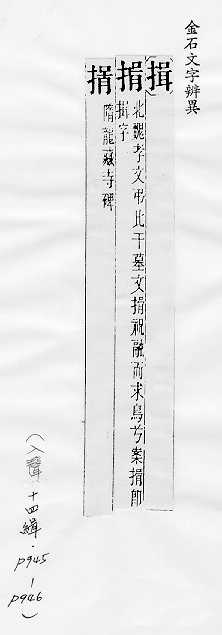 金石文字辨異
揖
捐 北魏孝文弔比干墓文捐祝融而求鳥兮案捐即
揖字
隋龍藏寺碑
(入聲 十四緝. p945-
p946)